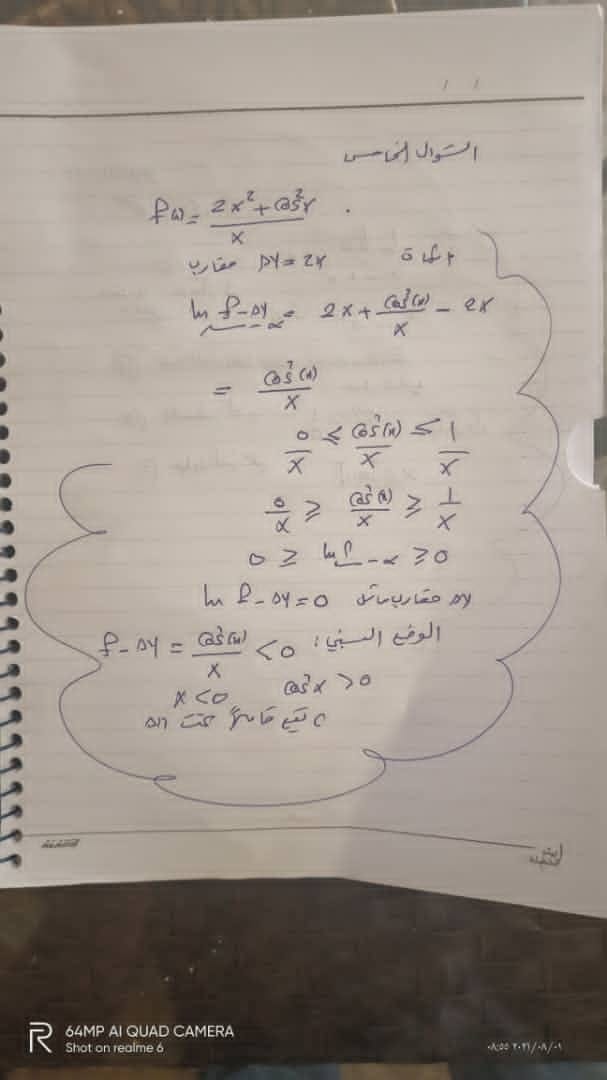 السؤال الخامس
f(x) = (2x² + cos²x) / x
Δy = 2x مقارب
lim f - Δy = 2x + cos²(x)/x - 2x
-∞
= cos²(x)/x
0/x ≤ cos²(x)/x ≤ 1/x
0/x ≥ cos²(x)/x ≥ 1/x
0 ≥ lim f -∞ ≥ 0
lim f - Δy = 0 مقارب مائل Δy
الوضع النسبي: f - Δy = cos²(x)/x < 0
x < 0 cos²x > 0
c تقع تحت
64MP AI QUAD CAMERA
Shot on realme 6
٠٨:٥٥ ٢٠٢١/٠٨/٠١